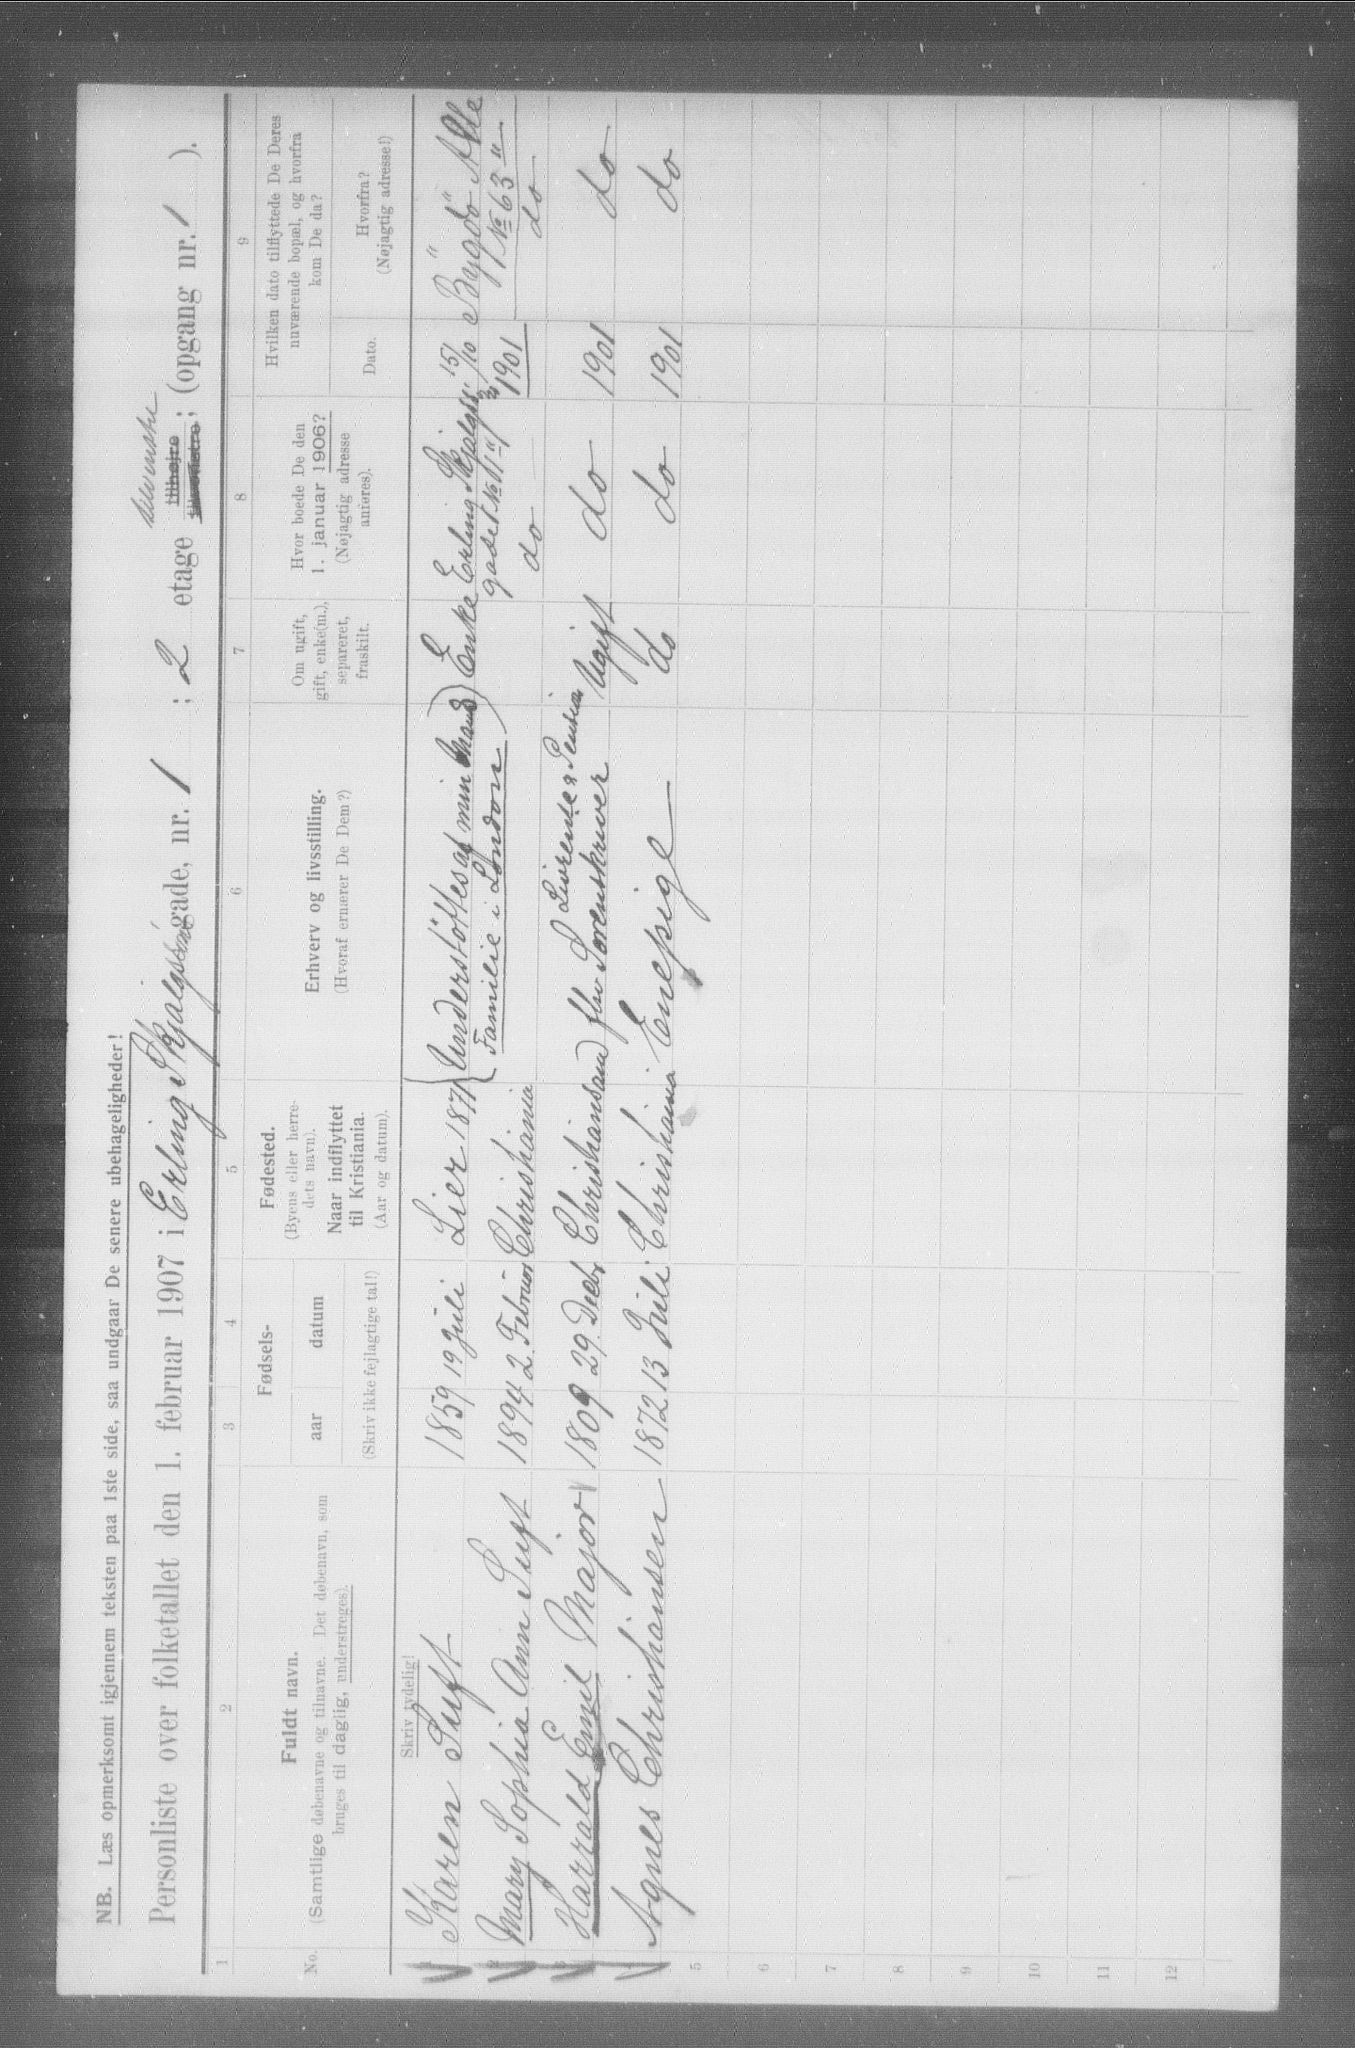 NB. Læs opmerksomt igjennem teksten paa 1ste side, saa undgaar De senere ubehageligheder!
Personliste over folketallet den 1. februar 1907 i Erling Skjalgssons gade, nr. 1 ; 2 etage tilvenstre tilhøjre tilvenstre ; (opgang nr. 1 ).
1 2 3 4 5 6 7 8 9
No.
Fuldt navn.
(Samtlige døbenavne og tilnavne. Det døbenavn, som
bruges til daglig, understreges).
Fødsels-
aar datum
(Skriv ikke fejlagtige tal!)
Fødested.
(Byens eller herre-
dets navn).
Naar indflyttet
til Kristiania.
(Aar og datum).
Erhverv og livsstilling.
(Hvoraf ernærer De Dem?)
Om ugift,
gift, enke(m.),
separeret,
fraskilt.
Hvor boede De den
1. januar 1906?
(Nøjagtig adresse
anføres).
Hvilken dato tilflyttede De Deres
nuværende bopæl, og hvorfra
kom De da?
Dato.
Hvorfra?
(Nøjagtig adresse!)
Skriv tydelig!
1 Karen Tuft 1859 19 Juli Lier 1871 Understöttes af min Mands Enke Erling Skjalgss. 15/10 Bygdö Alle
Familie i London gade No 1 1901 No 63
2 Mary Sophia Ann Tuft 1894 2. Februar Christiania do do
Livrente & Pension
3 Harrald Emil Major 1809 29. Decbr Christiansand fhv Sorenskriver Ugift do 1901 do
4 Agnes Christiansen 1872 13 Juli Christiania Enepige do do 1901 do
5
6
7
8
9
10
11
12